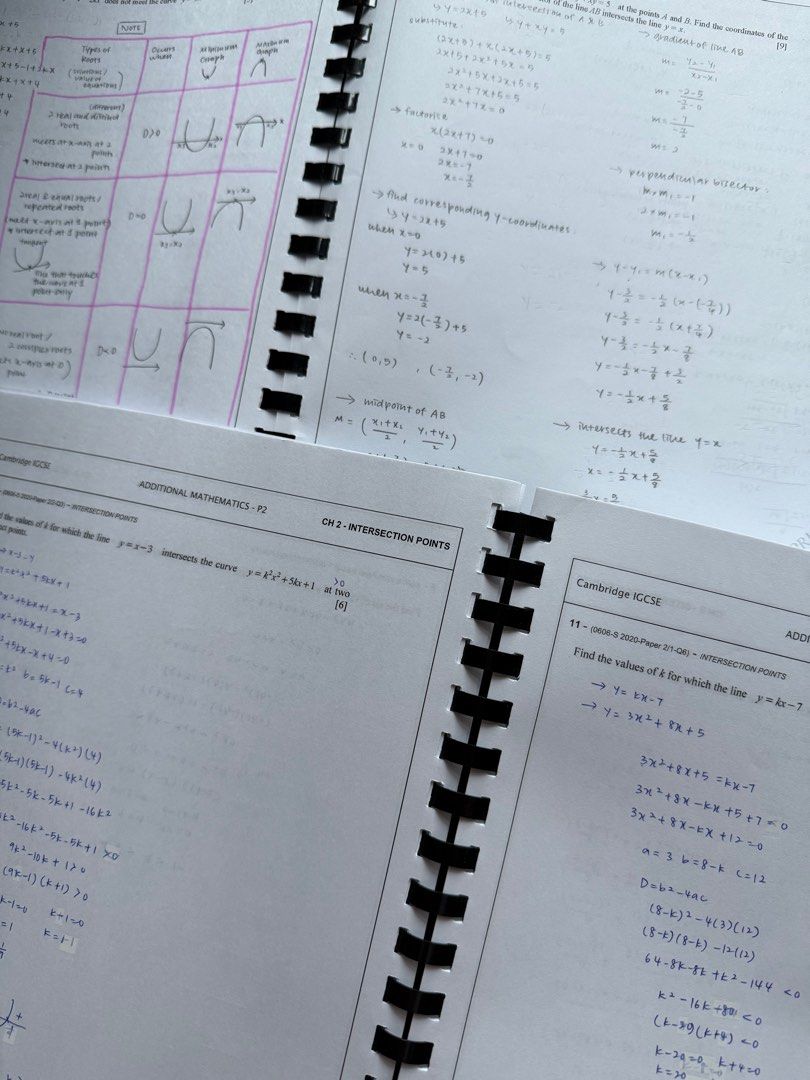 does not meet the curve
NOTE
Types of Roots
(solutions/ value of equations)
Occurs when
Minimum Graph
Maximum Graph
(different)
2 real and distinct roots
meets at x-axis at 2 points
* intersect at 2 points
D>0
2 real & equal roots/ repeated roots
(meet x-axis at 1 point)
* intersect at 1 point
tangent
line that touches the curve at 1 point only
D=0
x₁=x₂
x₁=x₂
no real root/
2 complex roots
D<0
at the points A and B. Find the coordinates of the
of the line AB intersects the line y = x.
[9]
↳ y=2x+5
↳ y+xy=5
substitute:
(2x+5)+x(2x+5)=5
2x+5+2x²+5x=5
2x²+5x+2x+5=5
2x²+7x+5=5
2x²+7x=0
→ factorise
x(2x+7)=0
x=0
2x+7=0
2x=-7
x=-7/2
→ find corresponding y-coordinates
↳ y=2x+5
when x=0
y=2(0)+5
y=5
when x=-7/2
y=2(-7/2)+5
y=-2
∴ (0,5) , (-7/2,-2)
→ midpoint of AB
M = (x₁+x₂/2, y₁+y₂/2)
→ gradient of line AB
m= y₂-y₁/x₂-x₁
m= -2-5/-7/2-0
m= -7/-7/2
m=2
→ perpendicular bisector:
m₁m₂=-1
2×m₁=-1
m₁=-1/2
→ y-y₁=m(x-x₁)
y-3/2=-1/2(x-(-7/4))
y-3/2=-1/2(x+7/4)
y-3/2=-1/2x-7/8
y=-1/2x-7/8+3/2
y=-1/2x+5/8
→ intersects the line y=x
y=-1/2x+5/8
x=-1/2x+5/8
3/2x=5/8
Cambridge IGCSE
ADDITIONAL MATHEMATICS - P2
CH 2 - INTERSECTION POINTS
(0606-S 2020-Paper 2/2-Q3) – INTERSECTION POINTS
the values of k for which the line y = x−3 intersects the curve y = k²x² + 5kx + 1 at two
points.
>0
[6]
x²+5kx+1=x-3
x²+5kx+1-x+3=0
x²+5kx-x+4=0
b=5k-1 c=4
D=b²-4ac
(5k-1)²-4(k²)(4)
(5k-1)(5k-1)-4k²(4)
25k²-5k-5k+1-16k²
k²-16k²-5k-5k+1>0
9k²-10k+1>0
(9k-1)(k+1)>0
k-1=0 k+1=0
k=-1
Cambridge IGCSE
ADDI
11 – (0606-S 2020-Paper 2/1-Q6) – INTERSECTION POINTS
Find the values of k for which the line y = kx − 7
→ y=kx-7
→ y=3x²+8x+5
3x²+8x+5=kx-7
3x²+8x-kx+5+7=0
3x²+8x-kx+12=0
a=3 b=8-k c=12
D=b²-4ac
(8-k)²-4(3)(12)
(8-k)(8-k)-12(12)
64-8k-8k+k²-144<0
k²-16k+80<0
(k-20)(k+4)<0
k-20=0 k+4=0
k=20